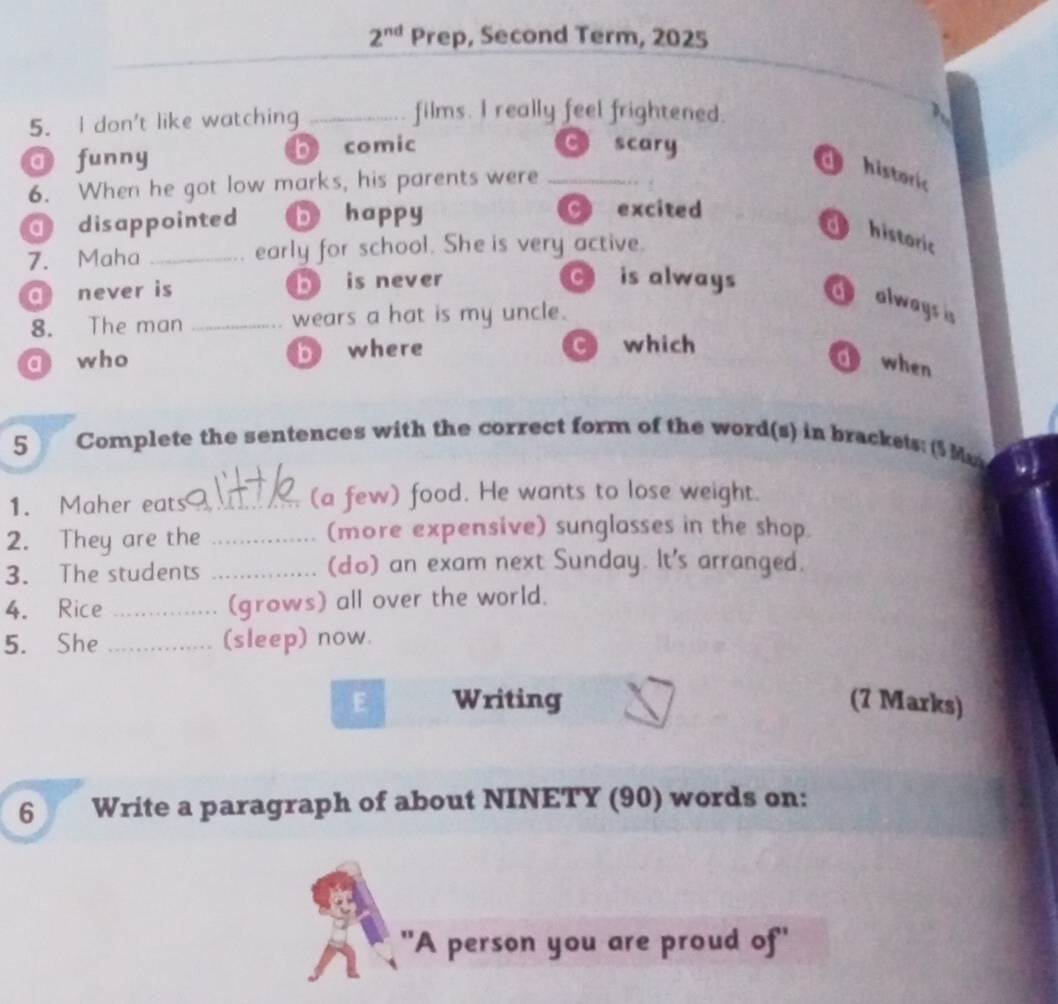 2nd Prep, Second Term, 2025
5. I don't like watching ............ films. I really feel frightened.
a funny b comic c scary d historic
6. When he got low marks, his parents were ............ .
a disappointed b happy c excited d historic
7. Maha ............ early for school. She is very active.
a never is b is never c is always d always is
8. The man ............ wears a hat is my uncle.
a who b where c which d when
5 Complete the sentences with the correct form of the word(s) in brackets: (5
1. Maher eats a little (a few) food. He wants to lose weight.
2. They are the ............ (more expensive) sunglasses in the shop.
3. The students ............ (do) an exam next Sunday. It's arranged.
4. Rice ............ (grows) all over the world.
5. She ............ (sleep) now.
E Writing (7 Marks)
6 Write a paragraph of about NINETY (90) words on:
"A person you are proud of"